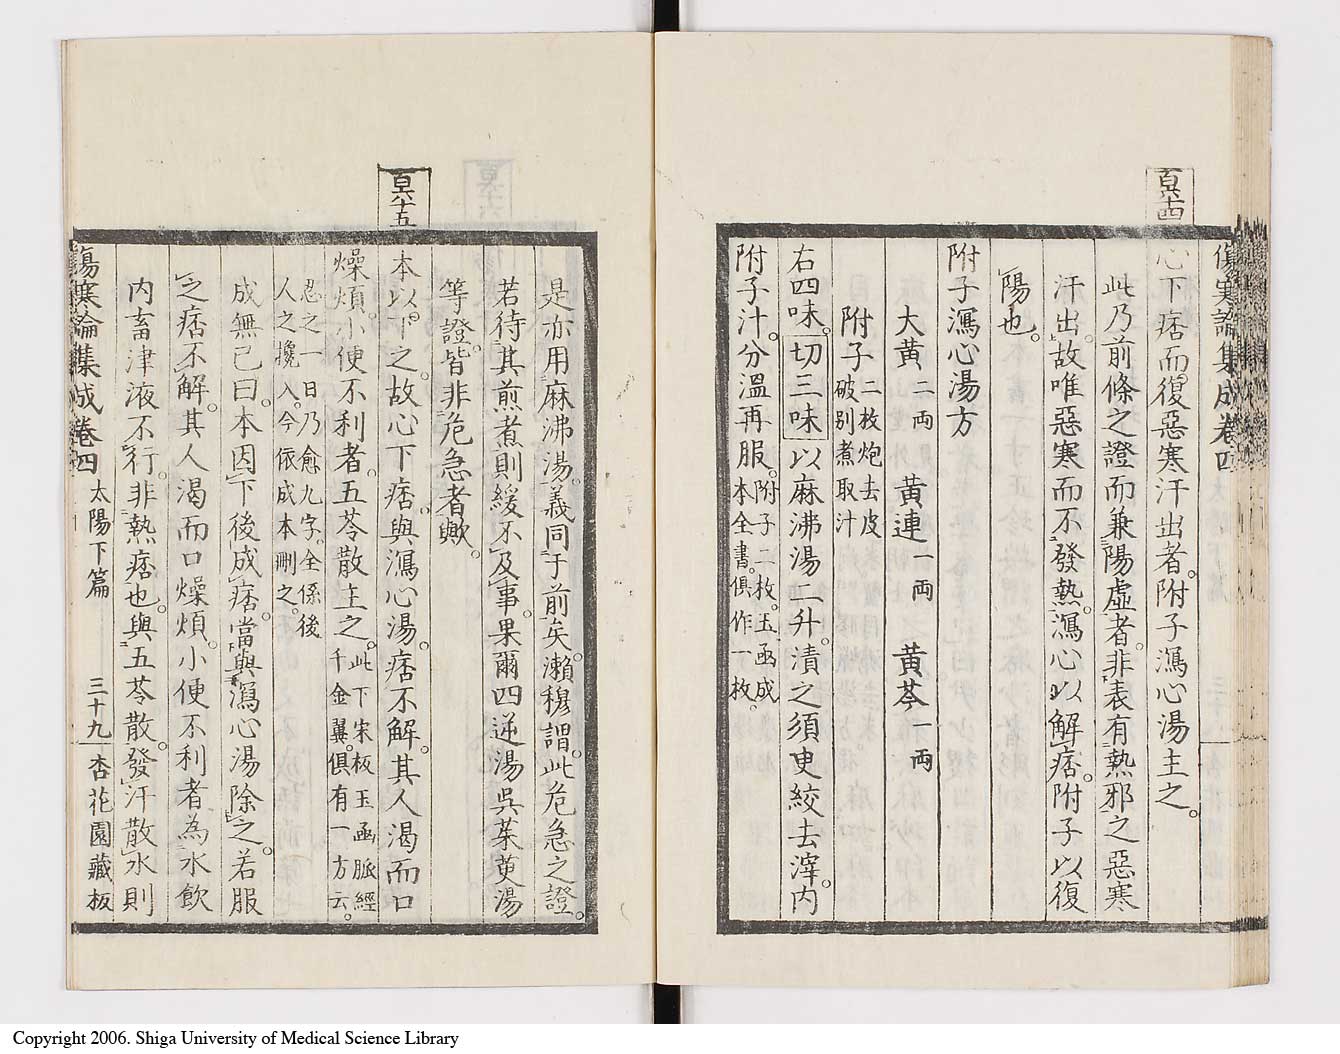 百六十四
傷寒論集成卷四
心下痞而復惡寒汗出者。附子瀉心湯主之。
此乃前條之證而兼陽虛者。非表有熱邪之惡寒
汗出。故唯惡寒而不發熱。瀉心以解痞。附子以復
陽也。
附子瀉心湯方
大黄二両 黄連一両 黄芩一両
附子二枚炮去皮
破別煮取汁
右四味。切三味以麻沸湯二升漬之須臾絞去滓。内
附子汁。分溫再服。附子二枚。玉函成
本全書。俱作一枚。
是亦用麻沸湯。義同于前矣。瀨穆謂。此危急之證。
若待其煎煮則緩不及事。果爾四逆湯吳茱萸湯
等證。皆非危急者歟。
百六十五
本以下之。故心下痞。與瀉心湯。痞不解。其人渴而口
燥煩。小便不利者。五苓散主之。此下宋板玉函脈經
千金翼。俱有一方云。
忍之一日乃愈九字。全係後
人之攙入。今依成本刪之。
成無已曰。本因下後成痞。當與瀉心湯除之。若服
之痞不解。其人渴而口燥煩。小便不利者。為水飲
内畜津液不行。非熱痞也。與五苓散。發汗散水則
傷寒論集成卷四 太陽下篇 三十九 杏花園藏板
Copyright 2006. Shiga University of Medical Science Library